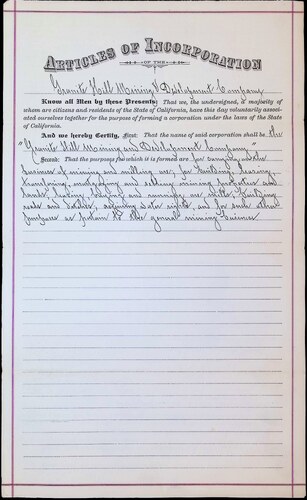 ARTICLES OF INCORPORATION
OF THE
Granite Hill Mining & Development Company
Know all Men by these Presents: That we, the undersigned, a majority of
whom are citizens and residents of the State of California, have this day voluntarily associ-
ated ourselves together for the purpose of forming a corporation under the laws of the State
of California.
And we hereby Certify, First: That the name of said corporation shall be the
"Granite Hill Mining and Development Company."
Second: That the purposes for which it is formed are for carrying on the
business of mining and milling ore; for building, leasing,
transferring, mortgaging and selling mining properties and
lands; leasing, buying and running ore mills; building
roads and ditches, acquiring water rights, and for such other
purposes as pertain to the general mining business